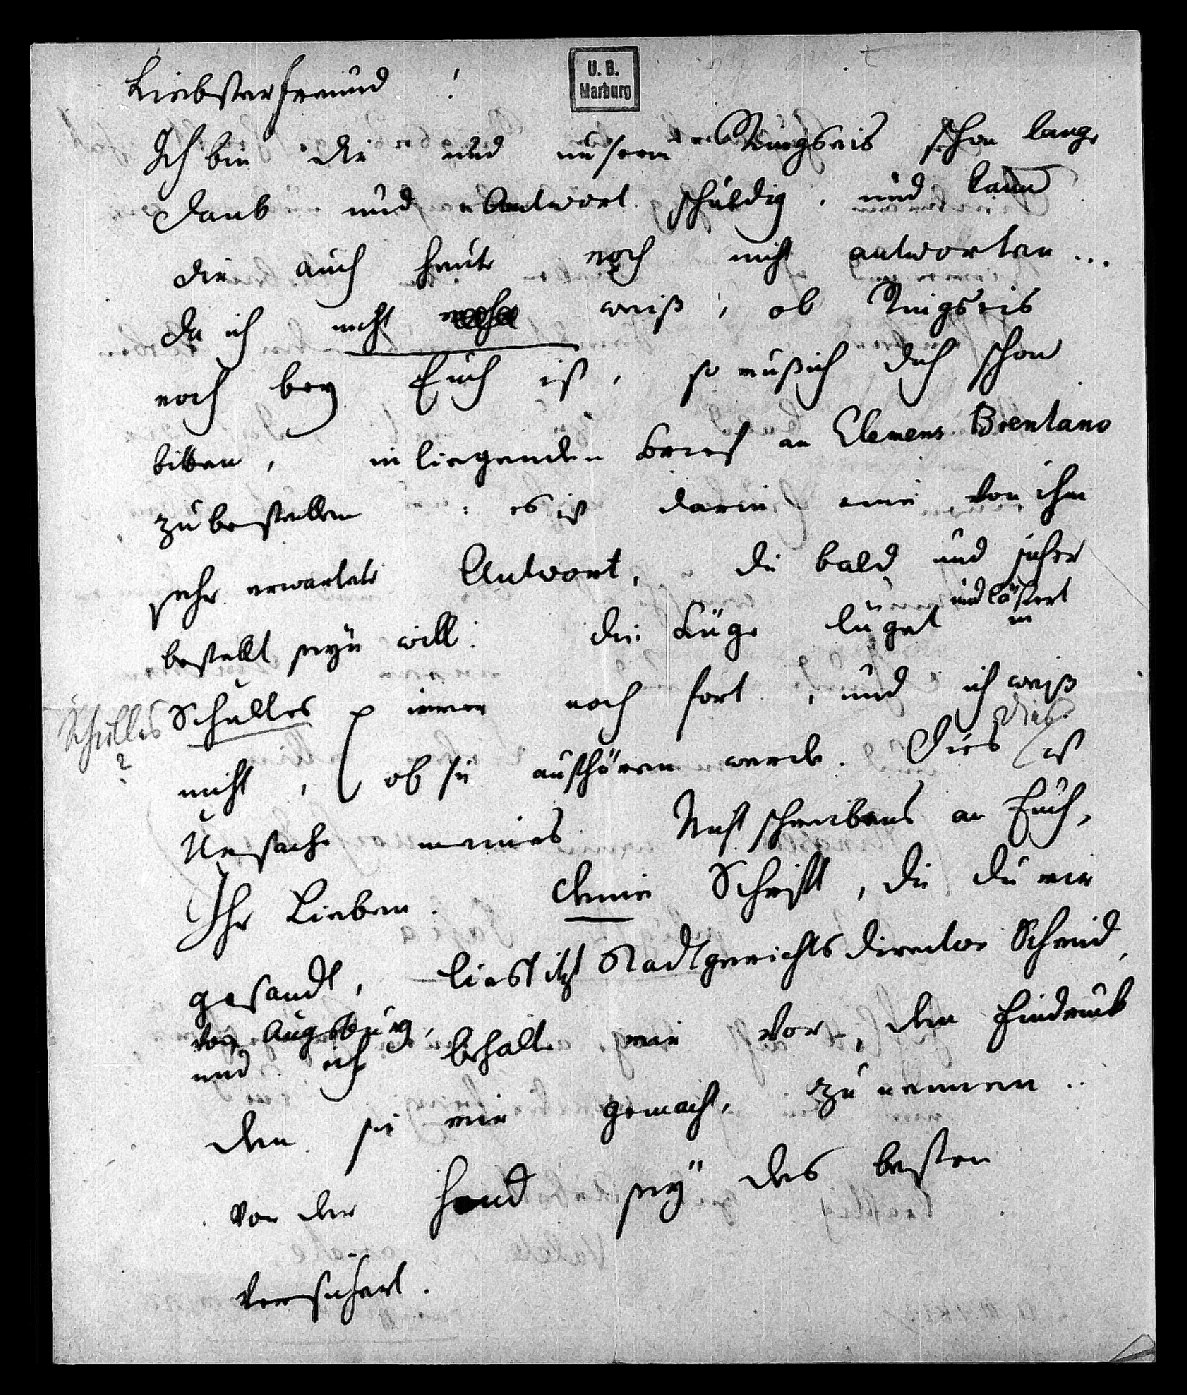 U. B.
Marburg
Liebster Freund!
Ich bin dir und unserm Ringseis schon lange
Dank und Antwort schuldig, und kann
dir auch heute noch nicht antworten...
Da ich nicht weiß, ob Ringseis
noch bey Euch ist, so muß ich dich schon
bitten, inliegenden Brief an Clemens Brentano
zu bestellen: es ist darin eine von ihm
sehr erwartete Antwort, die bald und sicher
bestellt seyn will. Die Lüge lüget und lästert in
Schulles
?
Schulles immer noch fort, und ich weiß
nicht, ob sie aufhören werde. Dies ist
Ursache meines Nichtschreibens an Euch,
Ihr Lieben. Deine Schrift, die du mir
gesandt, liest itzt Stadtgerichtsdirector Schmid,
von Augsburg,
und ich behalte mir vor, den Eindruck
den sie mir gemacht, zu nennen..
Vor der Hand sey des besten
versichert.